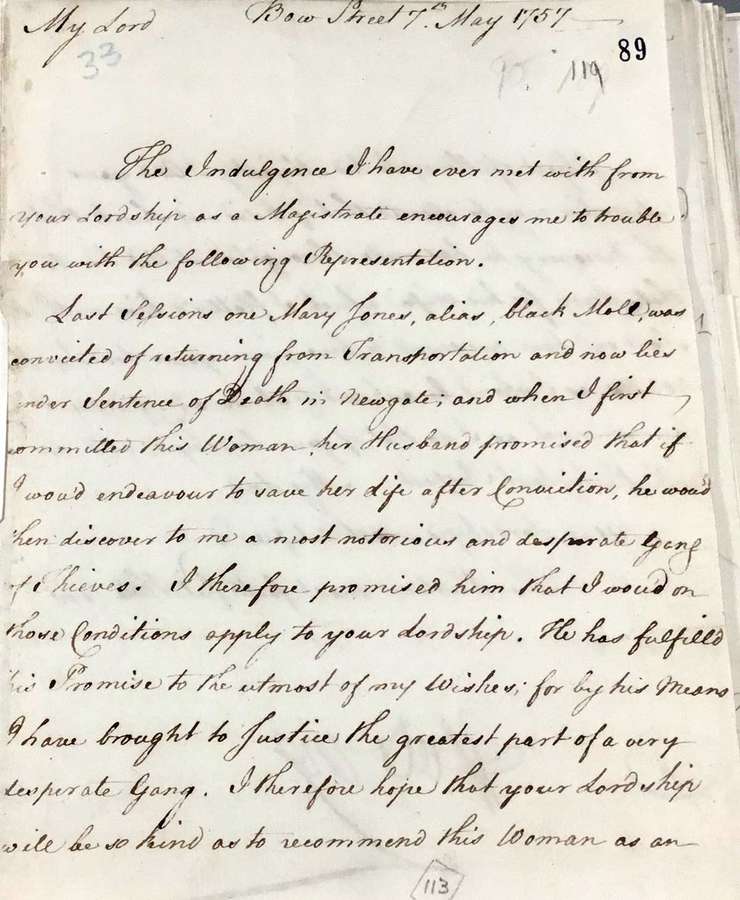 My Lord Bow Street 7th May 1757
33
89
119
The Indulgence I have ever met with from
your Lordship as a Magistrate encourages me to trouble
you with the following Representation.
Last Sessions one Mary Jones, alias, black Moll, was
convicted of returning from Transportation and now lies
under Sentence of Death in Newgate; and when I first
committed this Woman, her Husband promised that if
I wou'd endeavour to save her Life after Conviction, he wou'd
then discover to me a most notorious and desperate Gang
of Thieves. I therefore promised him that I wou'd on
those Conditions apply to your Lordship. He has fulfilld
his Promise to the utmost of my Wishes; for by his Means
I have brought to Justice the greatest part of a very
desperate Gang. I therefore hope that your Lordship
will be so kind as to recommend this Woman as an
113